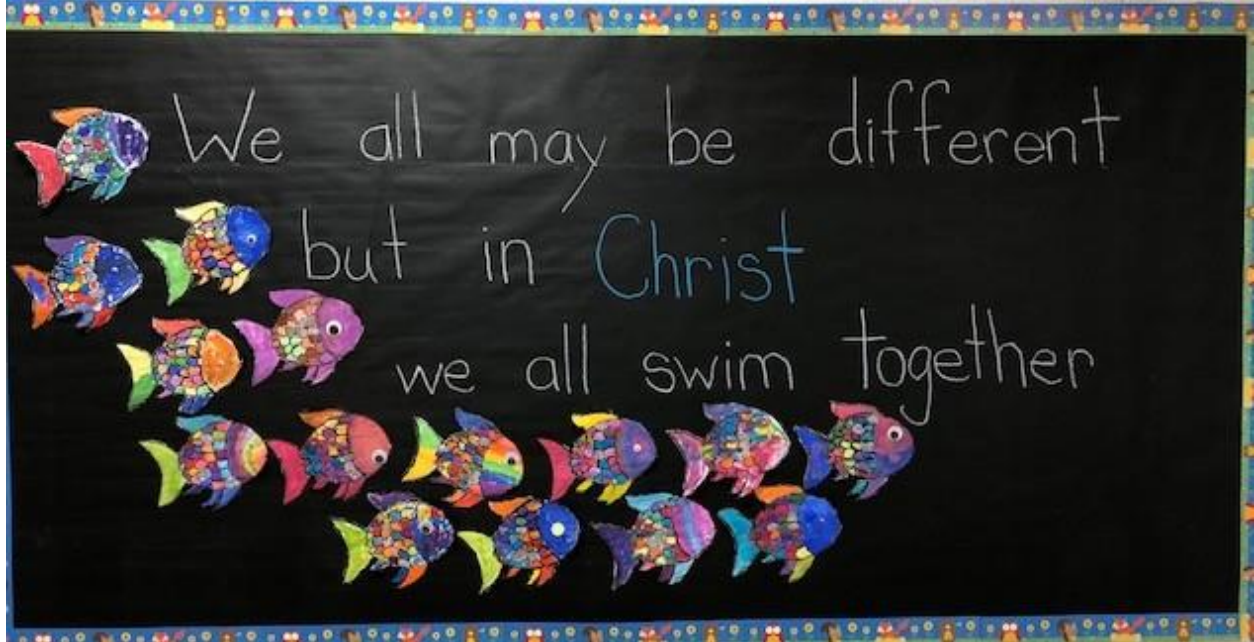 We all may be different
but in Christ
we all swim together